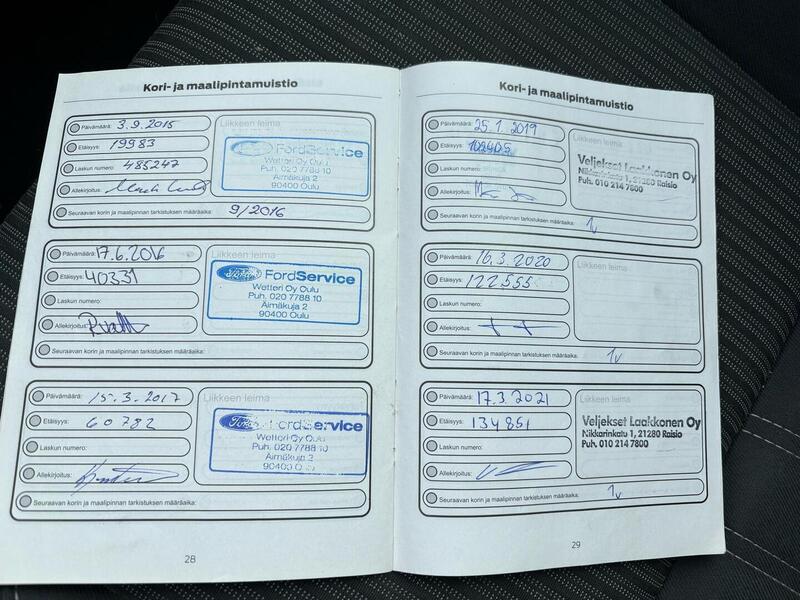 Kori- ja maalipintamuistio
Päivämäärä: 3.9.2015
Etäisyys: 19983
Laskun numero: 485247
Allekirjoitus:
Seuraavan korin ja maalipinnan tarkistuksen määräaika: 9/2016
Liikkeen leima
Ford FordService
Wetteri Oy Oulu
Puh. 020 7788 10
Äimäkuja 2
90400 Oulu
Päivämäärä: 17.6.2016
Etäisyys: 40331
Laskun numero:
Allekirjoitus:
Seuraavan korin ja maalipinnan tarkistuksen määräaika:
Liikkeen leima
Ford FordService
Wetteri Oy Oulu
Puh. 020 7788 10
Äimäkuja 2
90400 Oulu
Päivämäärä: 15.3.2017
Etäisyys: 60782
Laskun numero:
Allekirjoitus:
Seuraavan korin ja maalipinnan tarkistuksen määräaika:
Liikkeen leima
Ford FordService
Wetteri Oy Oulu
Puh. 020 7788 10
Äimäkuja 2
90400 Oulu
28
Kori- ja maalipintamuistio
Päivämäärä: 25.1.2019
Etäisyys:
Laskun numero:
Allekirjoitus:
Seuraavan korin ja maalipinnan tarkistuksen määräaika: 1v
Liikkeen leima
Veljekset Laakkonen Oy
Nikkarinkatu 1, 21280 Raisio
Puh. 010 214 7800
Päivämäärä: 16.3.2020
Etäisyys: 122555
Laskun numero:
Allekirjoitus:
Seuraavan korin ja maalipinnan tarkistuksen määräaika: 1v
Liikkeen leima
Päivämäärä: 17.3.2021
Etäisyys: 134851
Laskun numero:
Allekirjoitus:
Seuraavan korin ja maalipinnan tarkistuksen määräaika: 1v
Liikkeen leima
Veljekset Laakkonen Oy
Nikkarinkatu 1, 21280 Raisio
Puh. 010 214 7800
29